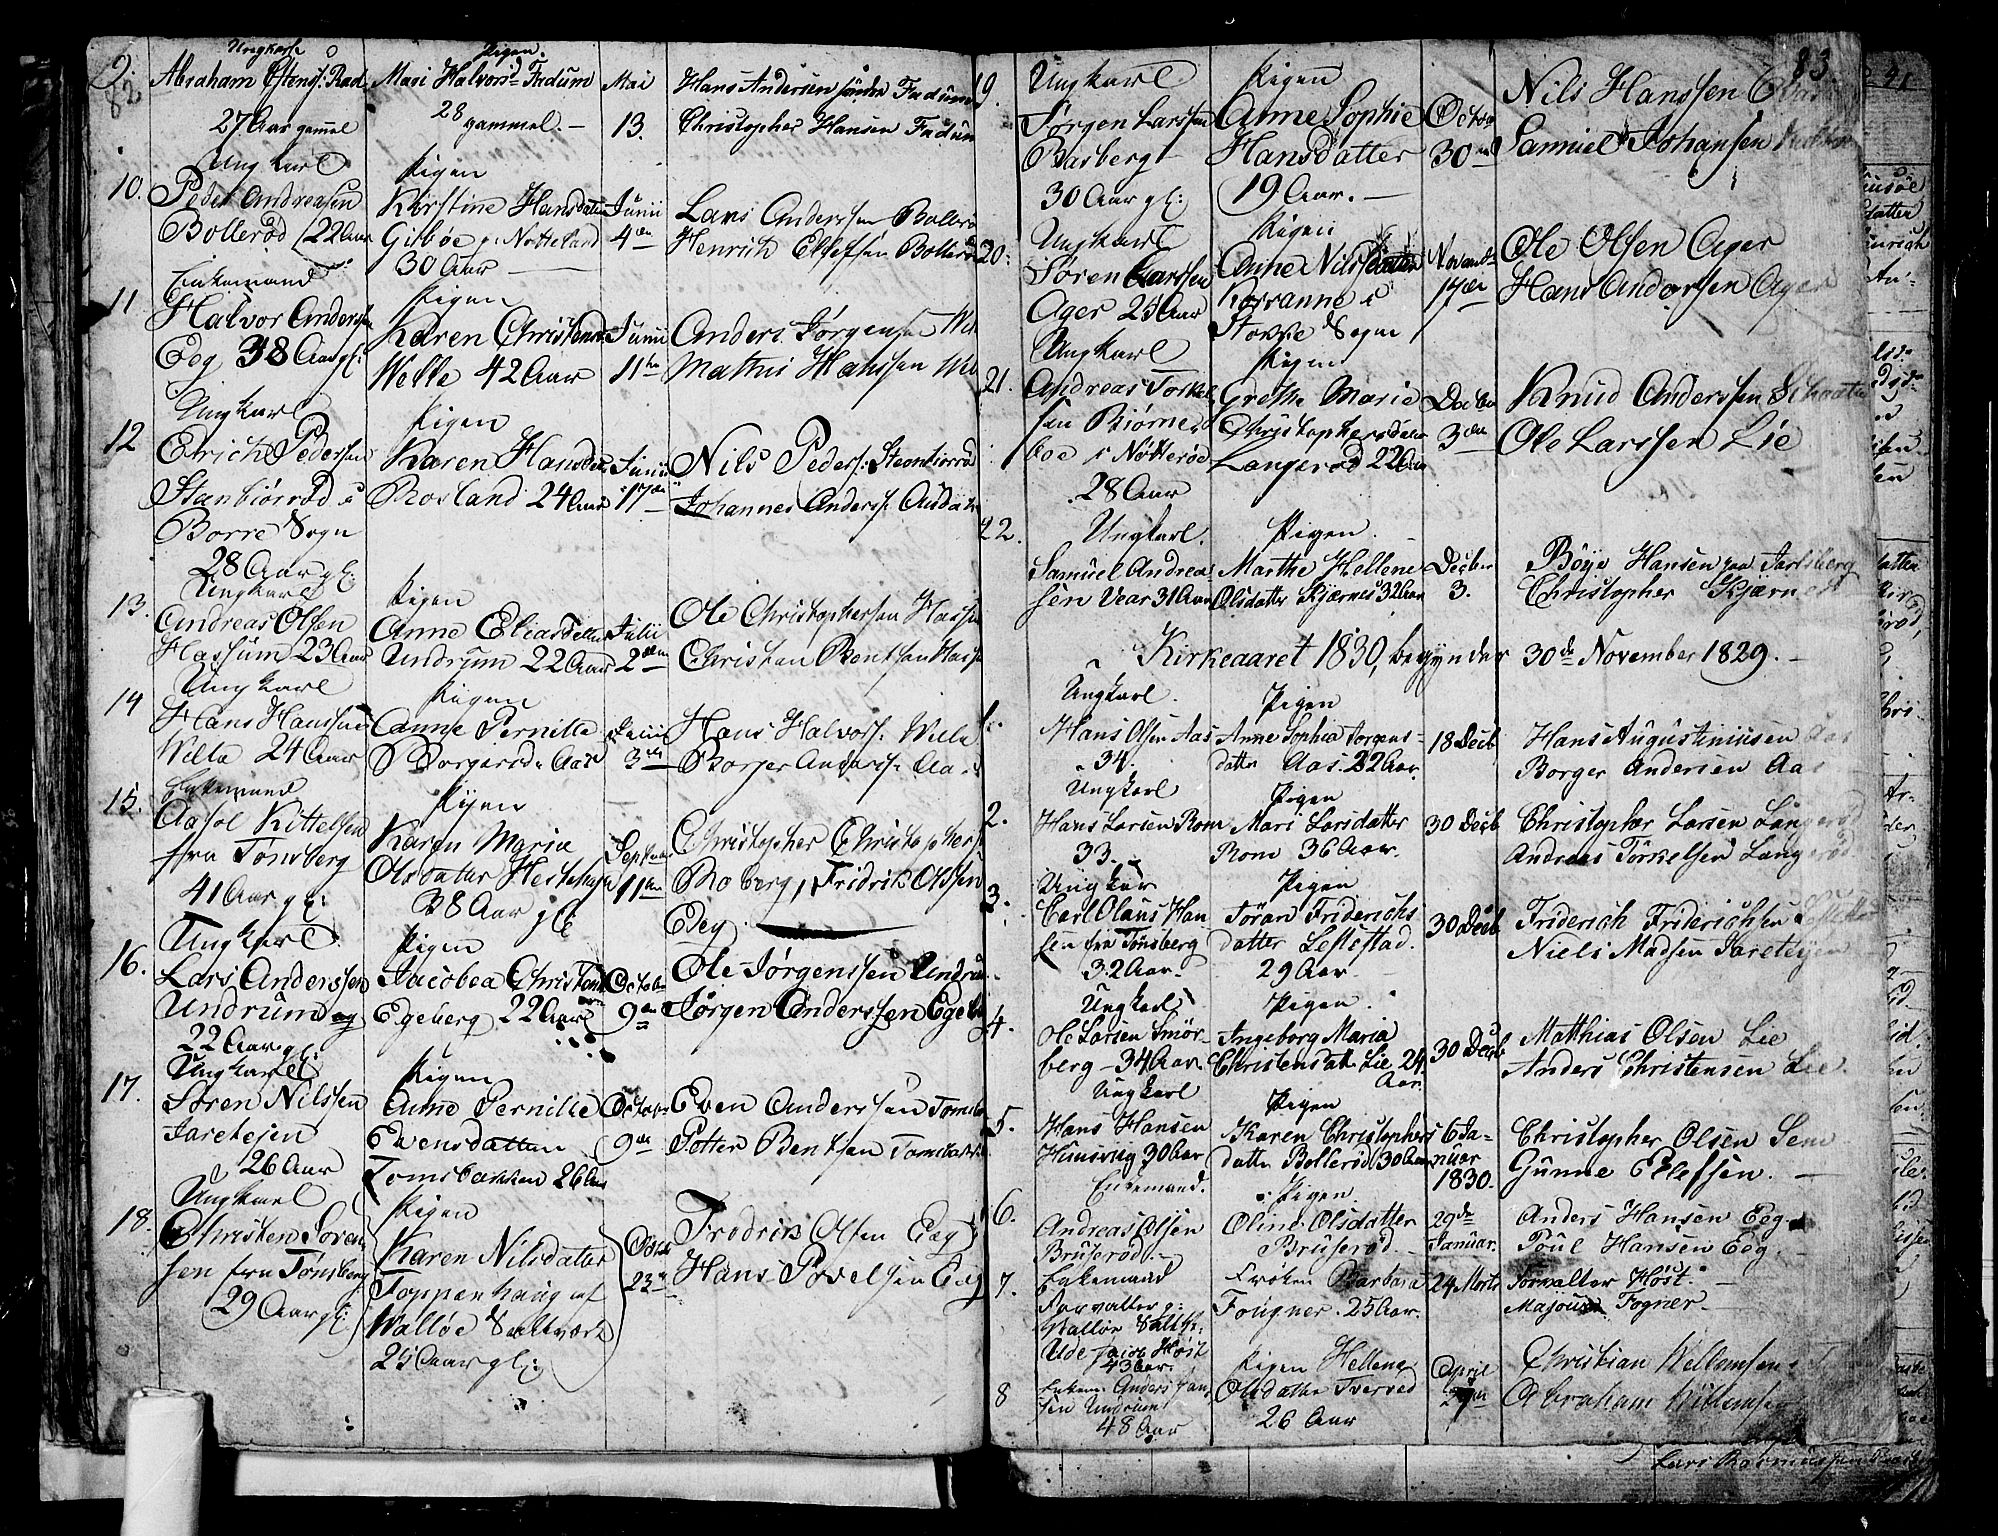 82
9.
Ungkarl
Abraham Estens: Rad
27 Aar gammel
Pigen
Mari Halvorsd Fadum
28 gammel. –
Mai
13.
Hans Andersen søndre Fadum
Christopher Hansen Fadum
10.
Ung karl
Peder Andreasen
Bollerød 22 Aar
Pigen
Kirstine Hansdatter
Gilbøe p: Nøtteland
30 Aar
Junii
4de
Lars Anderssen Bollerø
Henrich Ellefsen Bollerø
11
Enkemand
Halvor Anderssen
Eeg 38 Aar gl:
Pigen
Karen Christensd
Welle 42 Aar
Junii
11te
Anders Jørgensen Wel
Mathis Hanssen Wel
12
Ungkarl
Erich Pedersen
Stanbiørrød i
Borre Sogn
28 Aar gl:
Pigen
Karen Hansdr
Rosland 24 Aar
Junii
17de
Nils Peders: Stenbiørrø
Johannes Anders:
13.
Ungkarl
Andreas Olsen
Hassum 23 Aar
Pigen
Anne Eliasdatter
Undrum 22 Aar
Julii
2den
Ole Christophersen Hassu
Christen Bentsen Hass
14
Ung karl
Hans Hanssen
Wella 24 Aar
Pigen
Anne Pernille
Borgersd: Aas
3die
Hans Halvors: Wele
Borger Anders: Aas
15.
Enkemand
Aasol Kittelsen
fra Tønsberg
41 Aar gl:
Pigen
Karen Maria
Olsdatter Hestehage
38 Aar gl:
Septembr
11te
Christopher Christophers
Roberg, Fridrik Olssen
Eeg.
16.
Ungkarl
Lars Anderssen
Undrum
22 Aar gl:
Pigen
Jacobea Christensd
Egeberg 22 Aar
October
9de
Ole Jørgenssen Undru
Jørgen Anderssen Egebe
17.
Ungkarl
Søren Nilssen
Jareteien
26 Aar
Pigen
Anne Pernille
Evensdatter
Tomsbakken 26 Aar
October
9de
Even Anderssen Tomsba
Petter Bentsen Tomsbak
18.
Ungkarl
Christen Søren
sen fra Tønsberg
29 Aar gl:
Pigen
Karen Nilsdatter
Toppenhaug af
Walløe Saltværk
25 Aar gl:
October
23de
Fredrik Olsen Eeg
Hans Povelsen Eeg
83.
19.
Ungkarl
Jørgen Larssen
Basberg
30 Aar gl:
Pigen
Anne Sophie
Hansdatter
19 Aar. –
October
30te
Nils Hanssen
Samuel Johansen
20.
Ungkarl
Søren Larssen
Ager 25 Aar
Pigen
Anne Nilsdatter
i
Stokke Sogn
Novembr
17de
Ole Olsen Ager
Hans Anderssen Ager
21.
Ungkarl
Andreas Torkel
sen Biørne
boe i Nøtterøe
28 Aar
Pigen
Grethe Marie
Christophersdatter
Langerød 22 Aar
Decbr
3die
Knud Anderssen
Ole Larssen Lie
22.
Ungkarl.
Samuel Andrea
sen Vear 31 Aar
Pigen.
Marthe Hellene
Olsdatter Kjærnes 32 Aar
Decbr
3.
Böye Hansen paa Jarlsberg
Christopher Kjærnes
Kirkeaaret 1830, begynder 30de November 1829. –
1.
Ungkarl.
Hans Olsen Aas
34.
Pigen
Anne Sophia Jørgens-
datter Aas. 22 Aar.
18 Decb
Hans Augustinusen Aas
Borger Andersen Aas
2.
Ungkarl
Hans Larsen Rom
33.
Pigen
Mari Larsdatter
Rom 36 Aar.
30 Decb
Christopher Larsen Langerød
Andreas Törkelsen Langerød
3.
Ungkar
Carl Olaus Han
sen fra Tønsberg
32 Aar.
Pigen
Jöran Friderichs
datter Lefsestad.
29 Aar.
30 Decb
Friderich Friderichsen
Niels Madsen Jareteien
4.
Ungkarl
Ole Larsen Smör-
berg – 34 Aar.
Pigen.
Ingeborg Maria
Christensdat Lie 24
Aar.
30 Decb
Matthias Olsen Lie
Anders Christensen Lie
5.
Ungkarl
Hans Hansen
Huusvig 30 Aar
Pigen
Karen Christophers
datter Bollerød 30 Aar
6 Ja-
nuar
1830.
Christopher Olsen Sem
Gunne Ellefsen. –
6.
Enkemand.
Andreas Olsen
Bruserød. –
Pigen.
Oline Olsdatter
Bruserød. –
29de
Januar.
Anders Hansen Eeg
Poul Hansen Eeg. –
7.
Enkemand
Forvalter p:
Walløe Saltv:
Ude Jacob Høst
43 Aar.
Frøken Barbara
Fougner. 25 Aar.
24 Marts
Forvalter Høst. –
Majour Fogner. –
8
Enkem: Anders Jan-
sen Undrum
48 Aar
Pigen Hellene
Olsdatter Tverved
26 Aar
April
Christian Wellumsen
Abraham Willumsen
Lars Rasmussen